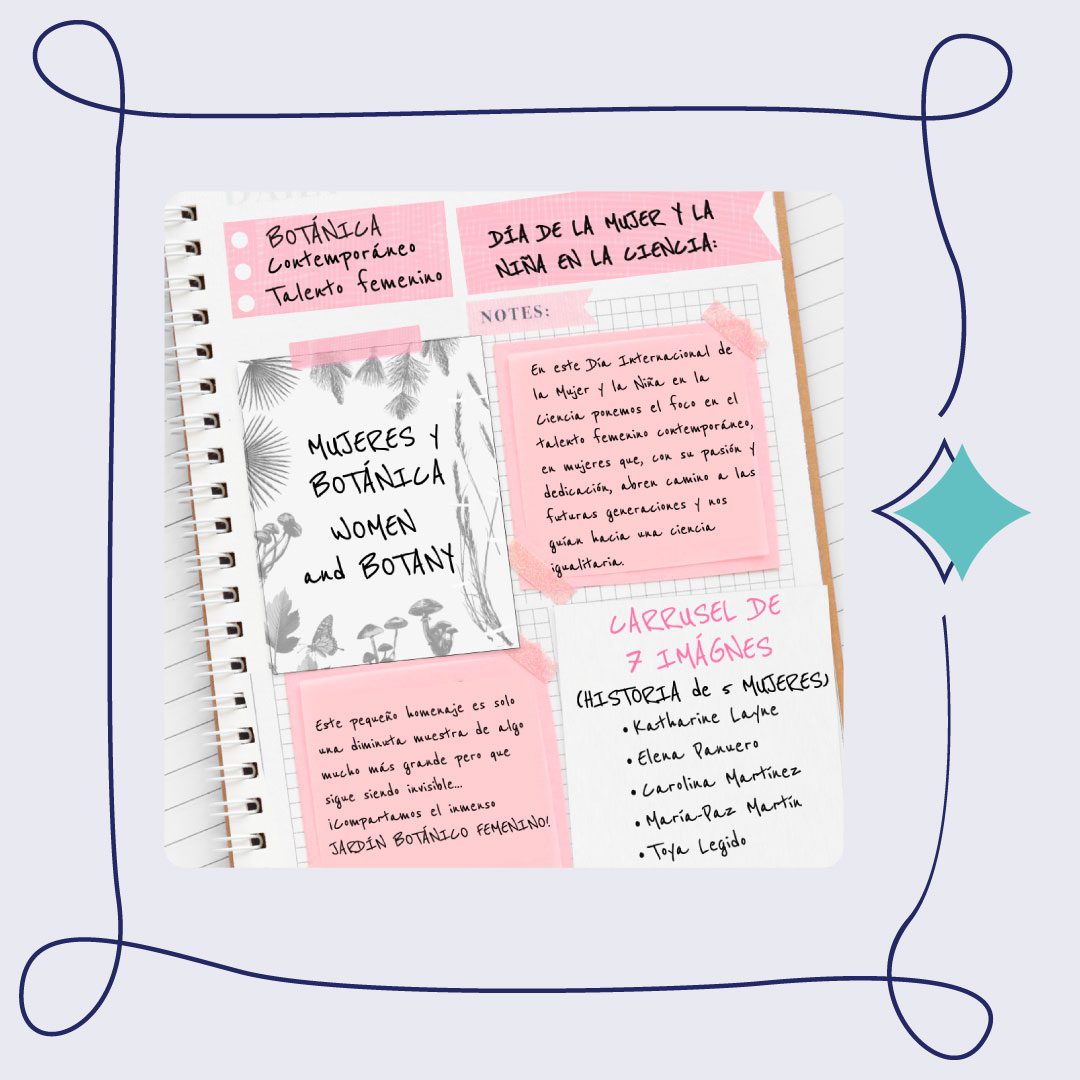 BOTÁNICA
Contemporáneo
Talento femenino
DÍA DE LA MUJER Y LA
NIÑA EN LA CIENCIA:
NOTES:
MUJERES Y
BOTÁNICA
WOMEN
and BOTANY
En este Día Internacional de
la Mujer y la Niña en la
Ciencia ponemos el foco en el
talento femenino contemporáneo,
en mujeres que, con su pasión y
dedicación, abren camino a las
futuras generaciones y nos
guían hacia una ciencia
igualitaria.
Este pequeño homenaje es solo
una diminuta muestra de algo
mucho más grande pero que
sigue siendo invisible...
¡Compartamos el inmenso
JARDÍN BOTÁNICO FEMENINO!
CARRUSEL DE
7 IMÁGNES
(HISTORIA de 5 MUJERES)
• Katharine Layne
• Elena Panuero
• Carolina Martínez
• María-Paz Martín
• Toya Legido